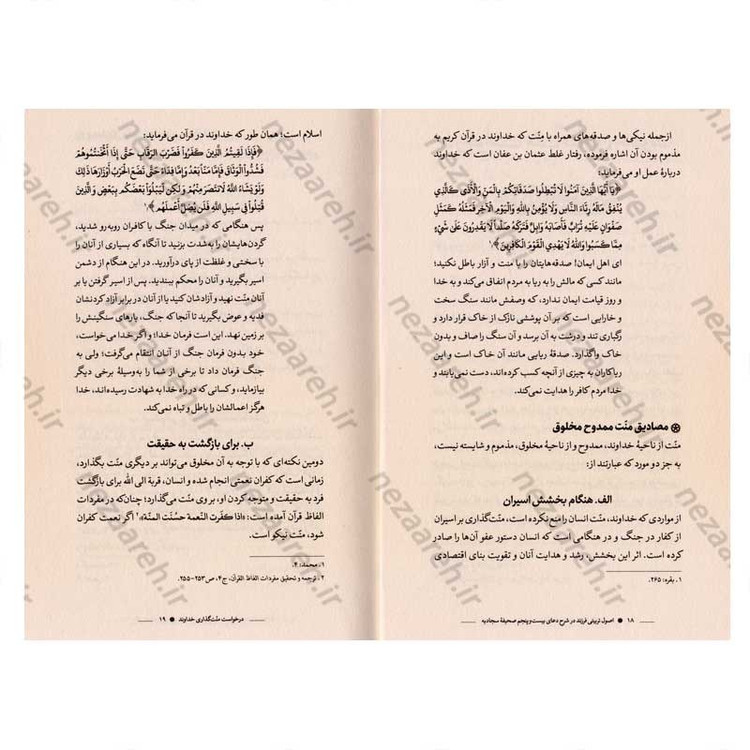 ازجمله نیکی‌ها و صدقه‌های همراه با مِنّت که خداوند در قرآن کریم به
مذموم بودن آن اشاره فرموده، رفتار غلط عثمان بن عفان است که خداوند
دربارهٔ عمل او می‌فرماید:
﴿يا أَيُّهَا الَّذِينَ آمَنُوا لَا تُبْطِلُوا صَدَقَاتِكُمْ بِالْمَنِّ وَالْأَذَى كَالَّذِي
يُنْفِقُ مَالَهُ رِئَاءَ النَّاسِ وَلَا يُؤْمِنُ بِاللَّهِ وَالْيَوْمِ الْآخِرِ فَمَثَلُهُ كَمَثَلِ
صَفْوَانٍ عَلَيْهِ تُرَابٌ فَأَصَابَهُ وَابِلٌ فَتَرَكَهُ صَلْدًا لَا يَقْدِرُونَ عَلَى شَيْءٍ
مِمَّا كَسَبُوا وَاللَّهُ لَا يَهْدِي الْقَوْمَ الْكَافِرِينَ﴾؛۱
ای اهل ایمان! صدقه‌هایتان را با منت و آزار باطل نکنید؛
مانند کسی که مالش را به ریا به مردم انفاق می‌کند و به خدا
و روز قیامت ایمان ندارد، که وصفش مانند سنگ سخت
و خارایی است که بر آن پوششی نازک از خاک قرار دارد و
رگباری تند و درشت به آن برسد و آن سنگ را صاف و بدون
خاک واگذارد. صدقهٔ ریایی مانند آن خاک است و این
ریاکاران به چیزی از آنچه کسب کرده‌اند، دست نمی‌یابند و
خدا مردم کافر را هدایت نمی‌کند.
مصادیق منّت ممدوح مخلوق
منّت از ناحیهٔ خداوند، ممدوح و از ناحیهٔ مخلوق، مذموم و شایسته نیست،
به جز دو مورد که عبارتند از:
الف. هنگام بخشش اسیران
از مواردی که خداوند، منّت انسان را منع نکرده است، منّت‌گذاری بر اسیران
از کفار در جنگ و در هنگامی است که انسان دستور عفو آن‌ها را صادر
کرده است. اثر این بخشش، رشد و هدایت آنان و تقویت بنای اقتصادی
۱. بقره: ۲۶۵.
۱۸ ● اصول تربیتی فرزند در شرح دعای بیست و پنجم صحیفهٔ سجادیه
اسلام است؛ همان طور که خداوند در قرآن می‌فرماید:
﴿فَإِذَا لَقِيتُمُ الَّذِينَ كَفَرُوا فَضَرْبَ الرِّقَابِ حَتَّى إِذَا أَثْخَنْتُمُوهُمْ
فَشُدُّوا الْوَثَاقَ فَإِمَّا مَنًّا بَعْدُ وَإِمَّا فِدَاءً حَتَّى تَضَعَ الْحَرْبُ أَوْزَارَهَا ذَلِكَ
وَلَوْ يَشَاءُ اللَّهُ لَانْتَصَرَ مِنْهُمْ وَلَكِنْ لِيَبْلُوَا بَعْضَكُمْ بِبَعْضٍ وَالَّذِينَ
قُتِلُوا فِي سَبِيلِ اللَّهِ فَلَنْ يُضِلَّ أَعْمَالَهُمْ﴾؛۱
پس هنگامی که در میدان جنگ با کافران روبه‌رو شدید،
گردن‌هایشان را به‌شدت بزنید تا آنگاه که بسیاری از آنان را
با سختی و غلظت از پای درآورید. در این هنگام از دشمن
اسیر بگیرید و آنان را محکم ببندید. پس از اسیر گرفتن یا بر
آنان منّت نهید و آزادشان کنید یا از آنان در برابر آزاد کردنشان
فدیه و عوض بگیرید تا آنجا که جنگ، بارهای سنگینش را
بر زمین نهد. این است فرمان خدا؛ و اگر خدا می‌خواست،
خود بدون فرمان جنگ از آنان انتقام می‌گرفت؛ ولی به
جنگ فرمان داد تا برخی از شما را به‌وسیلهٔ برخی دیگر
بیازماید، و کسانی که در راه خدا به شهادت رسیده‌اند، خدا
هرگز اعمالشان را باطل و تباه نمی‌کند.
ب. برای بازگشت به حقیقت
دومین نکته‌ای که با توجه به آن مخلوق می‌تواند بر دیگری منّت بگذارد،
زمانی است که کفران نعمتی انجام شده و انسان، قربة الی الله برای بازگشت
فرد به حقیقت و متوجه کردن او، بر وی منّت می‌گذارد؛ چنان‌که در مفردات
الفاظ قرآن آمده است: «اذا کفَرت النّعمة حسُنت المنّة»،۲ اگر نعمت کفران
شود، منّت نیکو است.
۱. محمد: ۴.
۲. ترجمه و تحقیق مفردات الفاظ القرآن، ج۴، ص۲۵۳-۲۵۵.
درخواست منّت‌گذاری خداوند ● ۱۹
nezaareh.ir